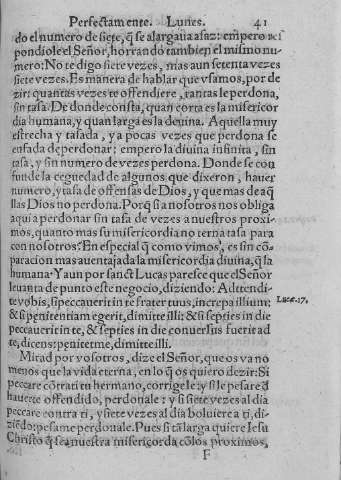 Perfectamente. Lunes. 41
do el numero de siete, q̃ se alargaua asaz: empero
pondiole el Señor, horrando tambien el mismo nu
mero: No te digo siete vezes, mas aun setenta vezes
siete vezes. Es manera de hablar que vsamos, por de
zir: quantas vezes te offendiere, tantas le perdona,
sin tasa. De donde consta, quan corta es la misericor
dia humana, y quan larga es la deuina. Aquella muy
estrecha y tasada, ya pocas vezes que perdona se
enfada de perdonar: empero la diuina infinita, sin
tasa, y sin numero de vezes perdona. Donde se con
funde la ceguedad de algunos que dixeron, hauer
numero, y tasa de offensas de Dios, y que mas de aq̃
llas Dios no perdona. Porq̃ si a nosotros nos obliga
aqui a perdonar sin tasa de vezes a nuestros proxi-
mos, quanto mas su misericordia no terna tasa para
con nosotros? En especial q̃ como vimos, es sin cõ-
paracion mas auentajada la misericordia diuina, q̃ la
humana. Y aun por sanct Lucas paresce que el Señor
leuanta de punto este negocio, diziendo: Adttendi-
te vobis, si peccauerit in te frater tuus, increpa illium:
Luc. 17.
& si penitentiam egerit, dimitte illi; & si septies in die
peccauerit in te, & septies in die conuersus fuerit ad
te, dicens: penitet me, dimitte illi.
Mirad por vosotros, dize el Señor, que os va no
menos que la vida eterna, en lo q̃ os quiero dezir: Si
peccare cõtra ti tu hermano, corrigele: y si le pesare d̃
hauerte offendido, perdonale: y si siete vezes al dia
peccare contra ti, y siete vezes al dia boluiere a ti, di-
ziẽdo: pesame perdonale. Pues si tã larga quiere Iesu
Christo q̃ sea nuestra misericorda cõ los proximos,
F